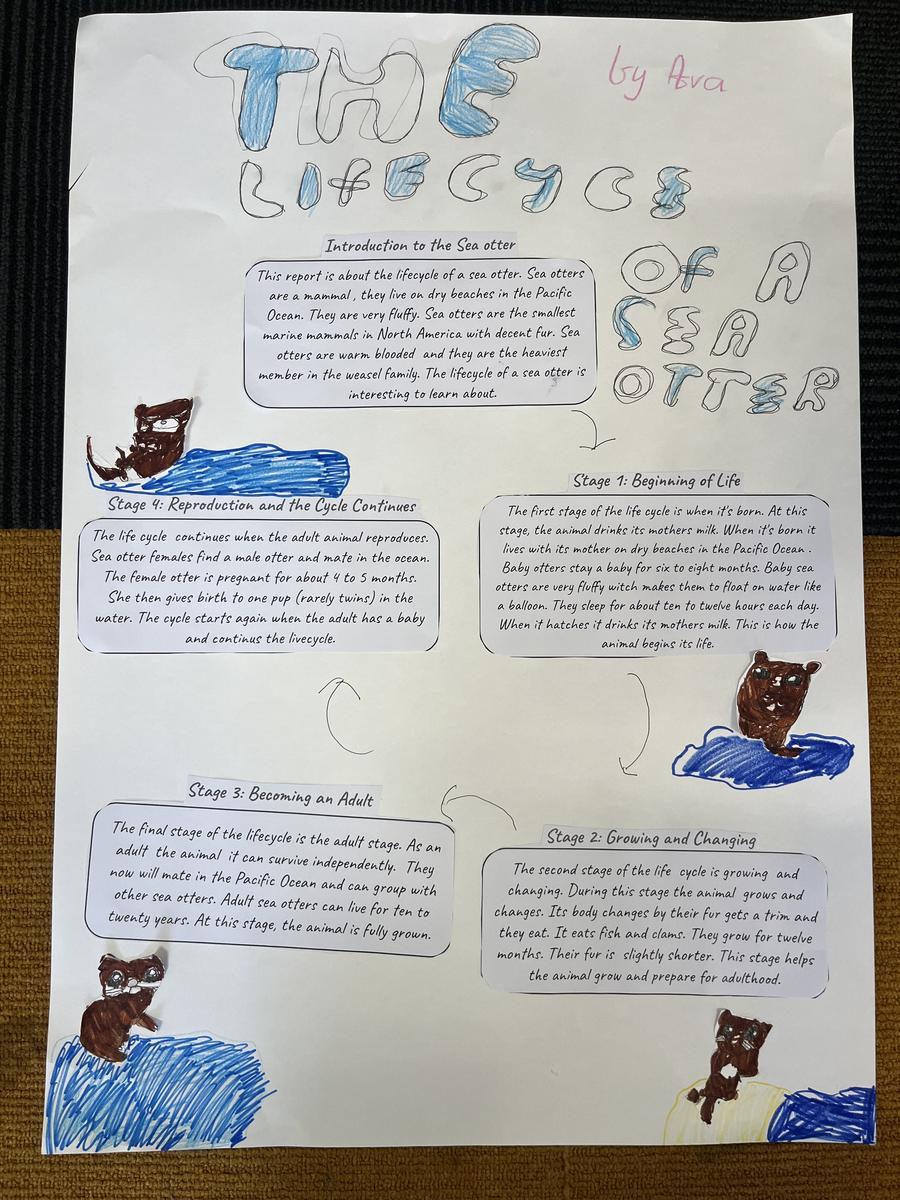 THE
by Ava
LIFECYCE
OF A
SEA
OTTER
Introduction to the Sea otter
This report is about the lifecycle of a sea otter. Sea otters
are a mammal , they live on dry beaches in the Pacific
Ocean. They are very fluffy. Sea otters are the smallest
marine mammals in North America with decent fur. Sea
otters are warm blooded and they are the heaviest
member in the weasel family. The lifecycle of a sea otter is
interesting to learn about.
Stage 1: Beginning of Life
The first stage of the life cycle is when it's born. At this
stage, the animal drinks its mothers milk. When it's born it
lives with its mother on dry beaches in the Pacific Ocean .
Baby otters stay a baby for six to eight months. Baby sea
otters are very fluffy witch makes them to float on water like
a balloon. They sleep for about ten to twelve hours each day.
When it hatches it drinks its mothers milk. This is how the
animal begins its life.
Stage 2: Growing and Changing
The second stage of the life cycle is growing and
changing. During this stage the animal grows and
changes. Its body changes by their fur gets a trim and
they eat. It eats fish and clams. They grow for twelve
months. Their fur is slightly shorter. This stage helps
the animal grow and prepare for adulthood.
Stage 3: Becoming an Adult
The final stage of the lifecycle is the adult stage. As an
adult the animal it can survive independently. They
now will mate in the Pacific Ocean and can group with
other sea otters. Adult sea otters can live for ten to
twenty years. At this stage, the animal is fully grown.
Stage 4: Reproduction and the Cycle Continues
The life cycle continues when the adult animal reproduces.
Sea otter females find a male otter and mate in the ocean.
The female otter is pregnant for about 4 to 5 months.
She then gives birth to one pup (rarely twins) in the
water. The cycle starts again when the adult has a baby
and continus the livecycle.